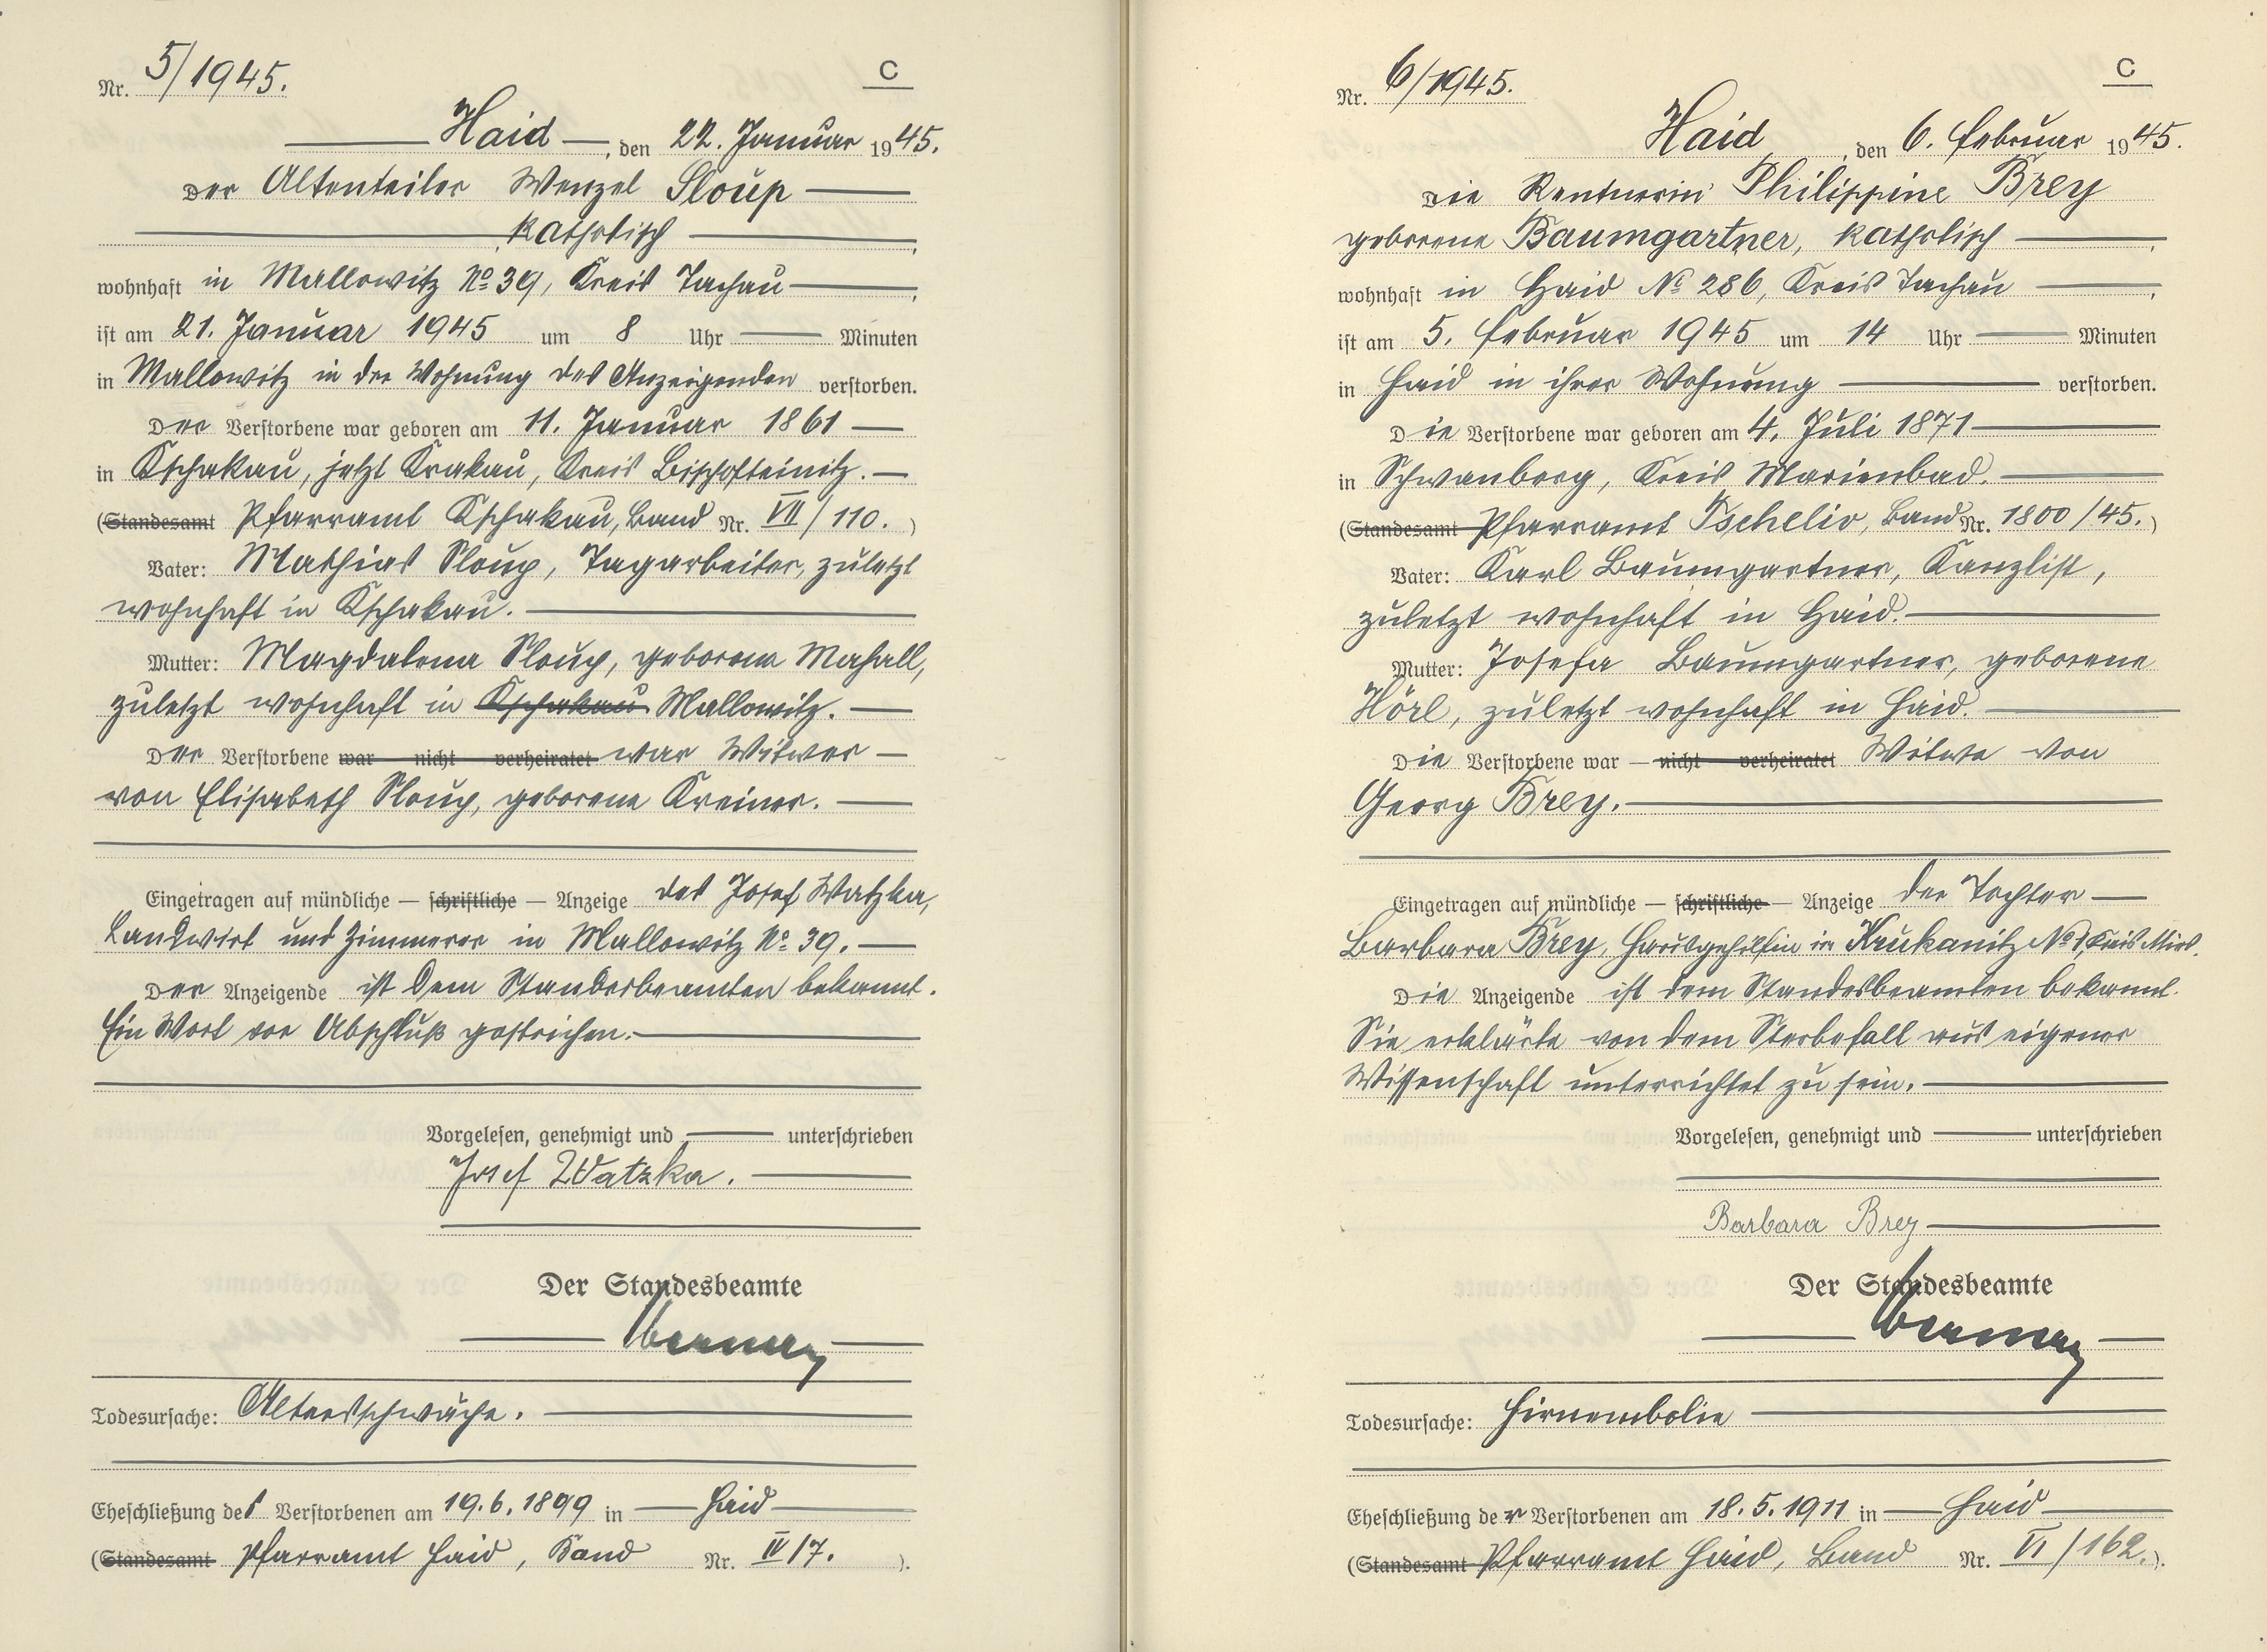 Nr. 5/1945.
C
Haid, den 22. Januar 1945.
Der Altenteiler Wenzel Sloup
katholisch,
wohnhaft in Mallowitz No 39, Kreis Tachau,
ist am 21. Januar 1945 um 8 Uhr Minuten
in Mallowitz in der Wohnung des Anzeigenden verstorben.
Der Verstorbene war geboren am 11. Januar 1861
in Kschakau, jetzt Krakau, Kreis Bischofteinitz.
(Standesamt Pfarramt Kschakau, Band Nr. VII/110.)
Vater: Mathias Sloup, Tagarbeiter, zuletzt
wohnhaft in Kschakau.
Mutter: Magdalena Sloup, geborene Mahall,
zuletzt wohnhaft in Kschakau Mallowitz.
Der Verstorbene war nicht verheiratet war Witwer
von Elisabeth Sloup, geborene Kreiner.
Eingetragen auf mündliche — schriftliche — Anzeige des Josef Watzka,
Landwirt und Zimmerer in Mallowitz No 39.
Der Anzeigende ist dem Standesbeamten bekannt.
Ein Wort vor Abschluß gestrichen.
Vorgelesen, genehmigt und unterschrieben
Josef Watzka.
Der Standesbeamte
Todesursache: Altersschwäche.
Eheschließung des Verstorbenen am 19.6.1899 in Haid
(Standesamt Pfarramt Haid, Band Nr. IV/7.).
Nr. 6/1945.
C
Haid, den 6. Februar 1945.
Die Rentnerin Philippine Brey
geborene Baumgartner, katholisch,
wohnhaft in Haid No 286, Kreis Tachau,
ist am 5. Februar 1945 um 14 Uhr Minuten
in Haid in ihrer Wohnung verstorben.
Die Verstorbene war geboren am 4. Juli 1871
in Schwanberg, Kreis Marienbad.
(Standesamt Pfarramt Tscheliv, Band Nr. 1800/45.)
Vater: Karl Baumgartner, Kanzlist,
zuletzt wohnhaft in Haid.
Mutter: Josefa Baumgartner, geborene
Hörl, zuletzt wohnhaft in Haid.
Die Verstorbene war — nicht verheiratet Witwe von
Georg Brey.
Eingetragen auf mündliche — schriftliche — Anzeige der Tochter
Barbara Brey, Hausgehilfin in Krukanitz No 1, Kreis Mies.
Die Anzeigende ist dem Standesbeamten bekannt.
Sie erklärte von dem Sterbefall aus eigener
Wissenschaft unterrichtet zu sein.
Vorgelesen, genehmigt und unterschrieben
Barbara Brey
Der Standesbeamte
Todesursache: Hirnembolie
Eheschließung der Verstorbenen am 18.5.1911 in Haid
(Standesamt Pfarramt Haid, Band Nr. VI/162.).